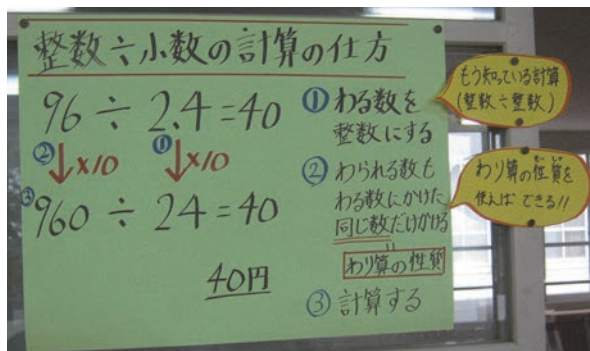 整数÷小数の計算の仕方
96÷2.4=40
② ↓×10 ① ↓×10
③ 960÷24=40
40円
① わる数を
整数にする
② わられる数も
わる数にかけた
同じ数だけかける
||
わり算の性質
③ 計算する
もう知っている計算
(整数÷整数)
わり算の性質を
せいしつ
使えば できる!!